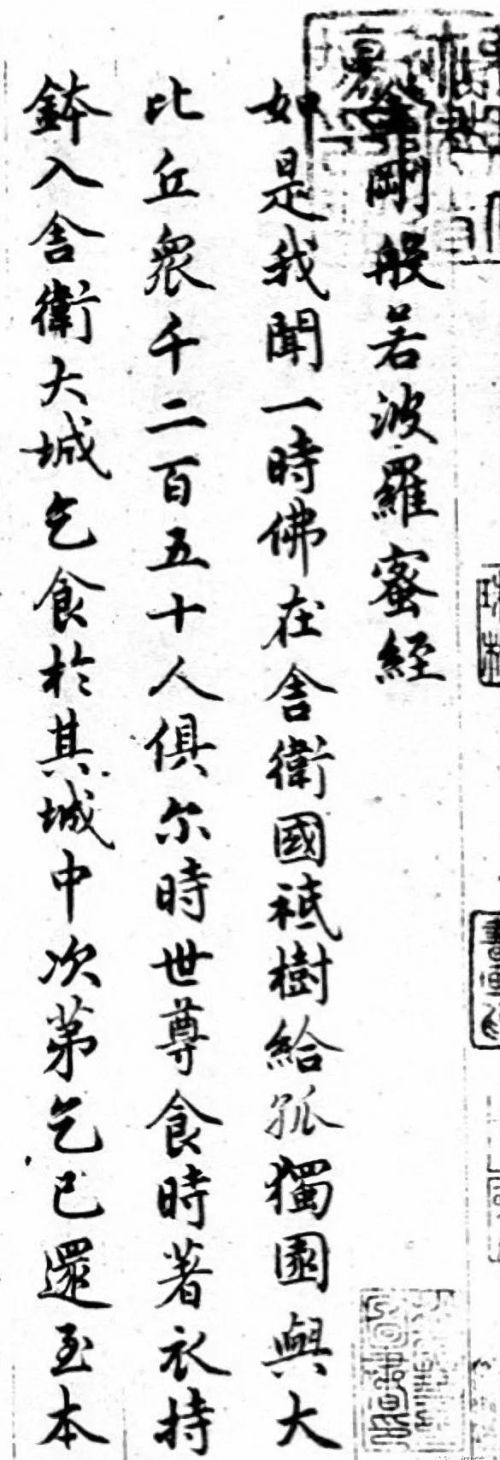 金剛般若波羅蜜經
如是我聞一時佛在舍衛國祇樹給孤獨園與大
比丘衆千二百五十人俱尒時世尊食時著衣持
鉢入舍衛大城乞食於其城中次第乞已還至本